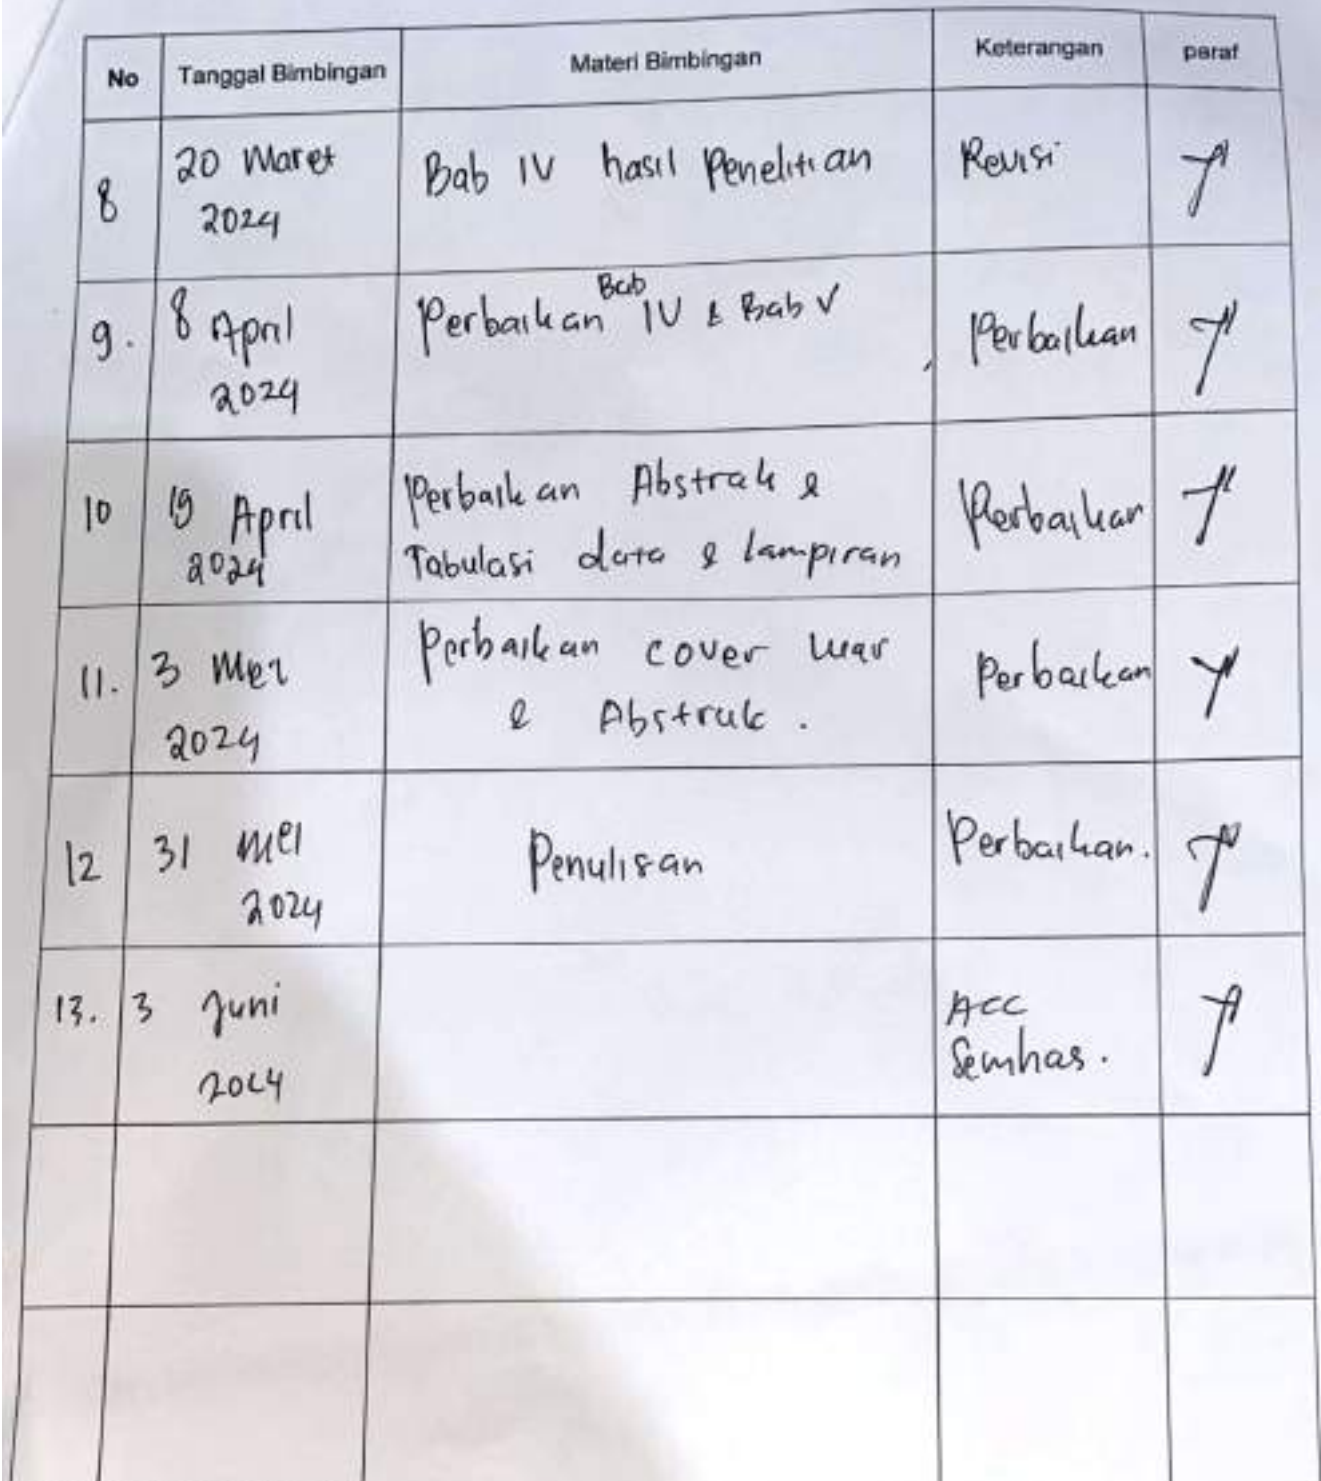 No Tanggal Bimbingan Materi Bimbingan Keterangan paraf
8 20 Maret 2024 Bab IV hasil Penelitian Revisi
9. 8 April 2024 Perbaikan Bab IV & Bab V Perbaikan
10 19 April 2024 Perbaikan Abstrak &
Tabulasi data & lampiran Perbaikan
11. 3 Mei 2024 Perbaikan cover luar
& Abstrak. Perbaikan
12 31 Mei 2024 Penulisan Perbaikan.
13. 3 Juni 2024 ACC
Semhas.